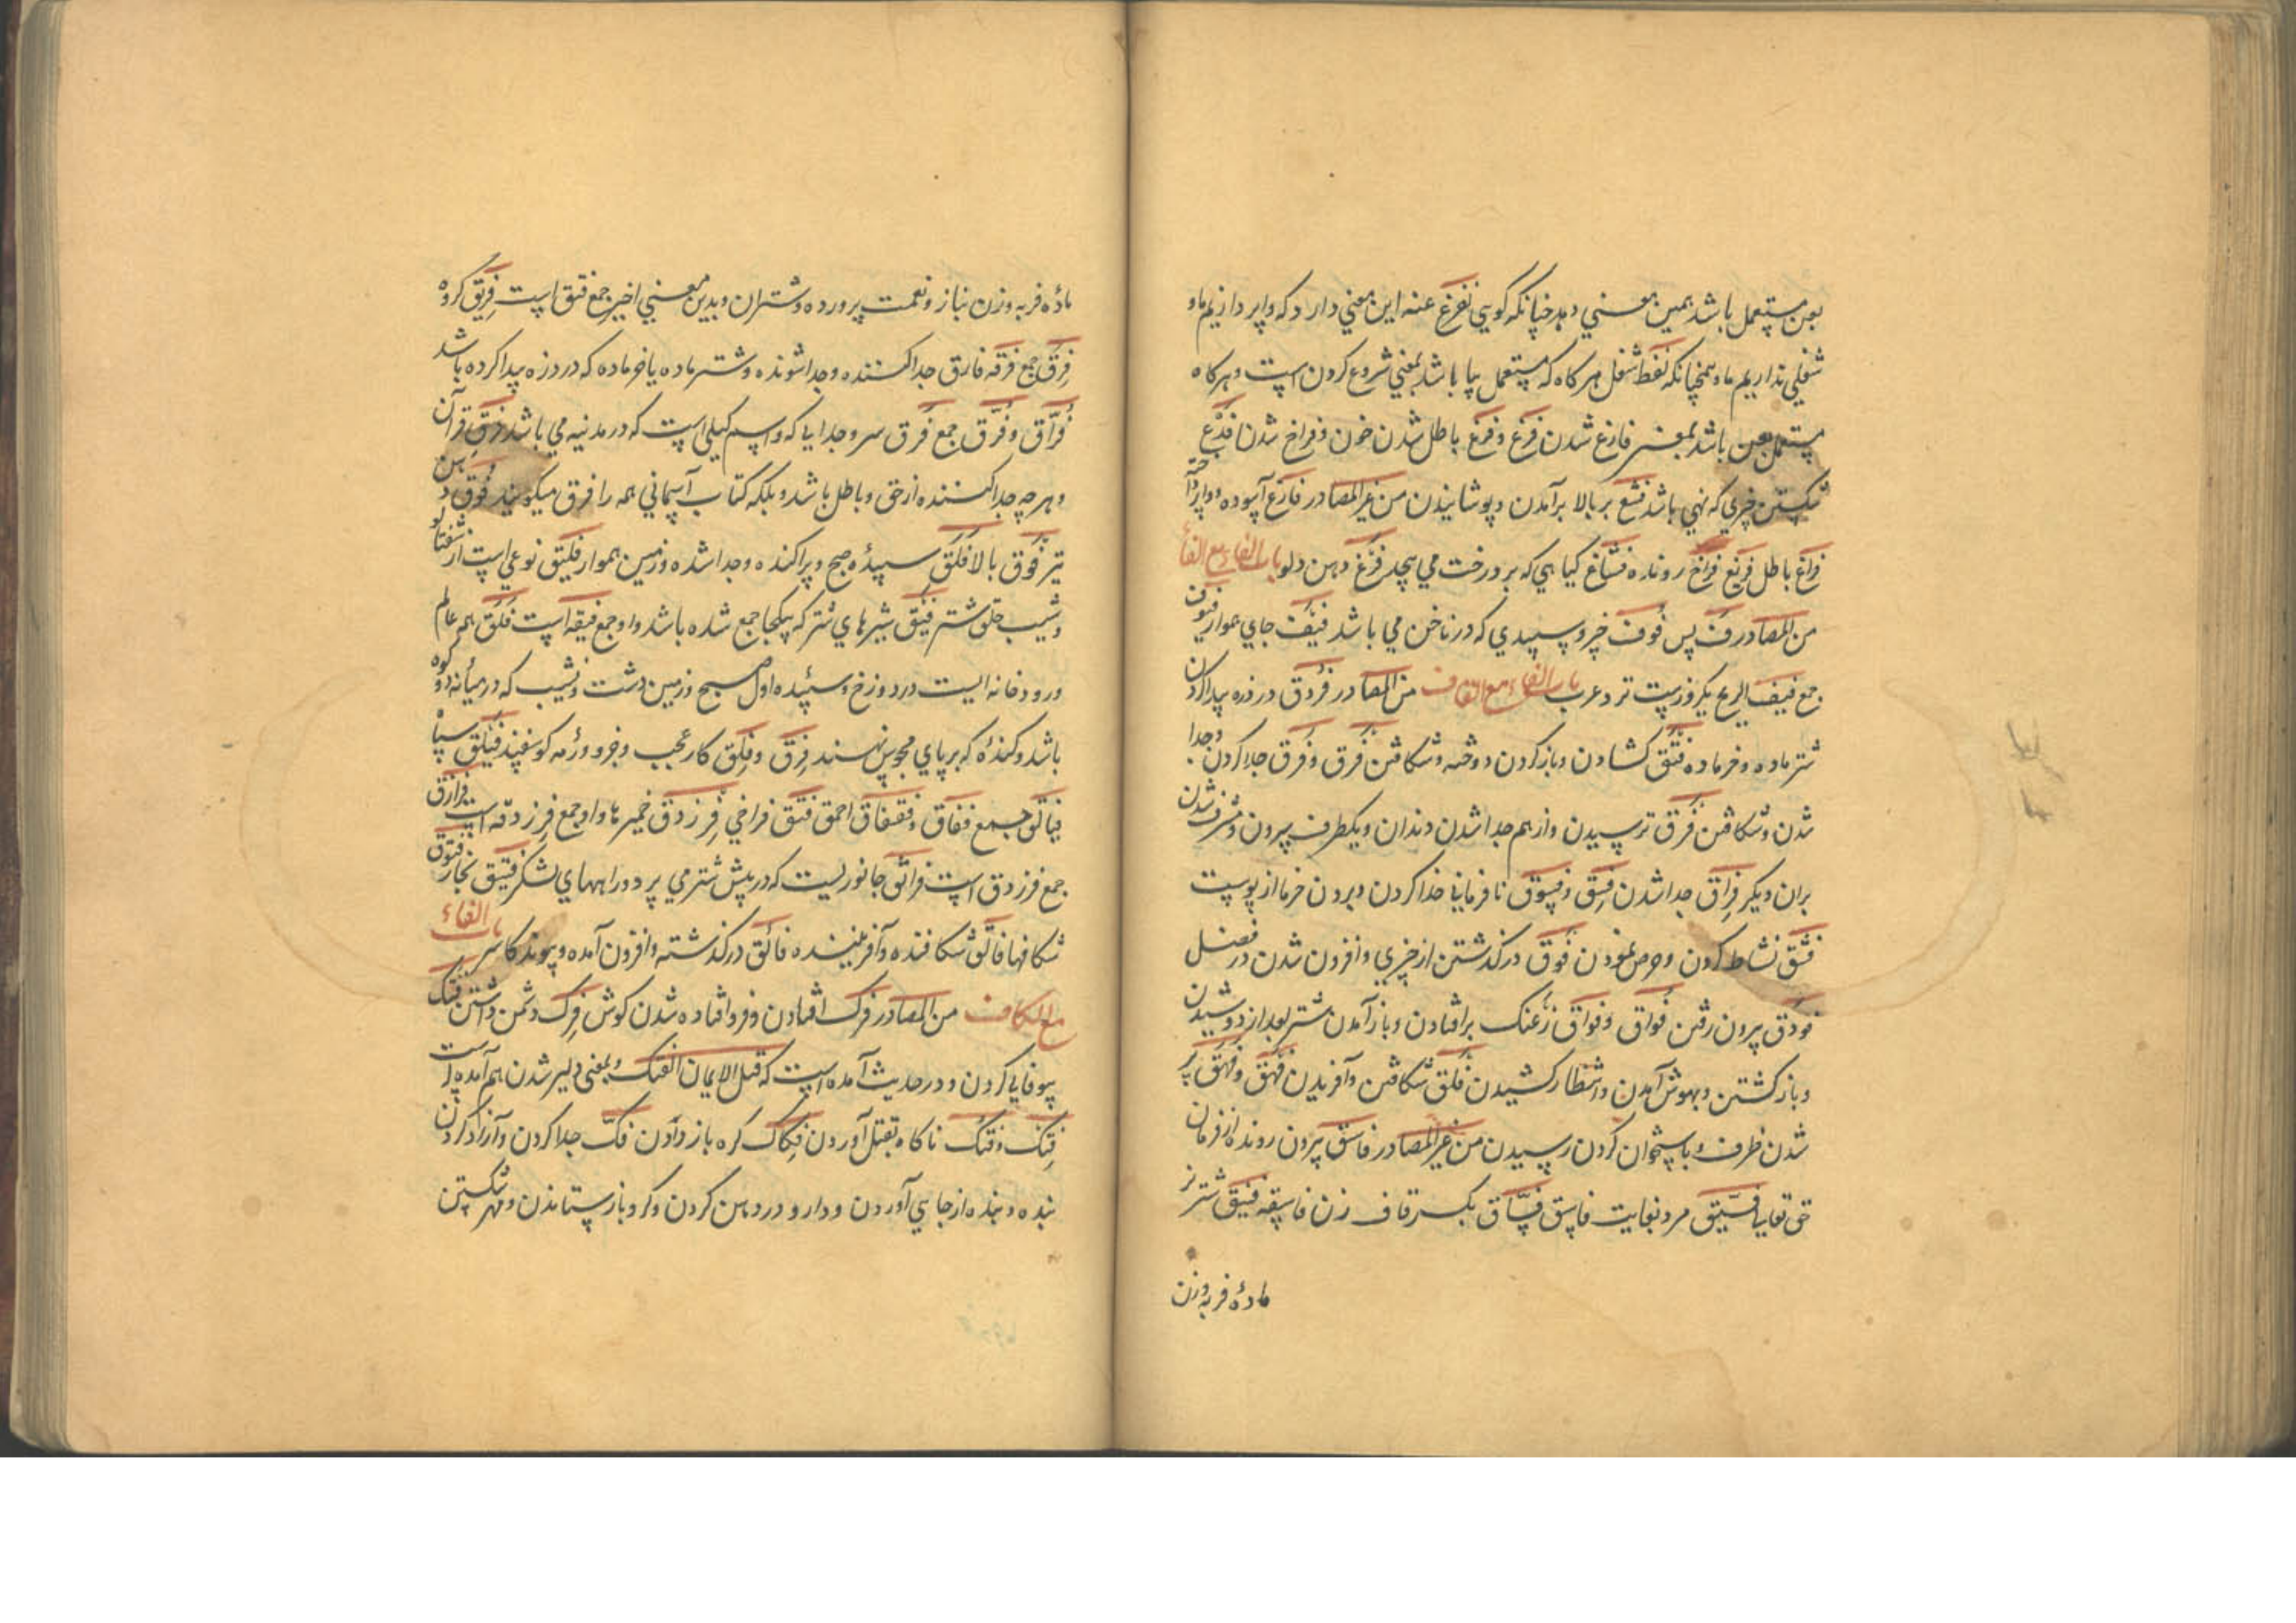 بعن مستعمل باشد بهمین معنی دهد چنانکه گویی نفرغ عنه این معنی دارد که واپردازیم ما و
شغلی نداریم ما و همچنانکه لفظ شغل هرگاه که مستعمل ببا باشد بمعنی شروع کردن است و هرگاه
مستعمل بعن باشد بمعنی فارغ شدن فرغ و فرغ باطل شدن خون و فراخ شدن فدغ
شکستن چیزی که تهی باشد فشغ بر بالا برآمدن و پوشانیدن من غیر المصادر فارغ آسوده و واپرداخته
فراغ باطل فریغ فراخ رونده فشاغ گیاهی که بر درخت می پیچد فرغ دهن دلو باب الفاء مع الفاء
من المصادر ف پس فوف خرو سپیدی که در ناخن می باشد فیف جای هموار فیوف
جمع فیف الریح یکروزیست نزد عرب باب الفاء مع القاف من المصادر فروق درد زه پیدا کردن
شتر ماده و خر ماده فتق کشادن و باز کردن دوخته و شکافتن فرق و فرق جدا کردن و جدا
شدن و شکافتن فرق ترسیدن و از هم جدا شدن دندان و یکطرف بیرون و مشرف شدن
بران دیگر فراق جدا شدن فسق و فسوق نافرمانی خدا کردن و بیرون خرما از پوست
فشق نشاط کردن و حرص نمودن فوق درگذشتن از چیزی و افزون شدن در فضل
فووق بیرون رفتن فواق و فواق زغنک برافتادن و بازآمدن شتر بعد از دوشیدن
و باز گشتن و بهوش آمدن و انتظار کشیدن فلق شکافتن و آفریدن فهق و فهق پر
شدن ظرف و باستخوان گردن رسیدن من غیر المصادر فاسق بیرون رونده از فرمان
حق تعالی فسیق مرد بغایت فاسق فساق بکسر قاف زن فاسقه فنیق شتر نر
مادهٔ فربه وزن
مادهٔ فربه وزن بناز و نعمت پرورده و شتران و بدین معنی اخیر جمع فنق است فریق گروه
فرق جمع فرقه فارق جدا کننده و جدا شونده و شتر ماده یا خر ماده که درد زه پیدا کرده باشد
فراق و فرق جمع فرق سر و جدایا که و اسم کیلی است که در مدنیه می باشد فرق قرآن
و هر چه جدا کننده از حق و باطل باشد و بلکه کتاب آسمانی همه را فرق میگویند فوق دهن
تیر فوق بالا فلق سپیدهٔ صبح و پراکنده و جدا شده و زمین هموار فلیق نوعی است از شفتالو
و شیب حلق شتر فیق شیرهای شتر که یکجا جمع شده باشد و او جمع فیقه است فلق همه عالم
و رودخانه ایست در دوزخ و سپیده اول صبح و زمین دشت و نشیب که در میانه دو کوه
باشد و کندهٔ که بر پای محبوس نهند فرق و فلق کار عجب و خرو و رمه گوسفند فیلق سپاه
فیالق جمع فقاق و فقفاق احمق فتق فراخی فرزدق خمیرها و او جمع فرزدقه است فرازق
جمع فرزدق است فرانق جانوریست که در پیش شتر می پرد و راههای لشکر فتیق نجار فتوق
شکافها فالق شکافنده و آفریننده فائق درگذشته و افزون آمده و پیوند کاسر باب الفاء
مع الکاف من المصادر فرک افتادن و فرو افتاده شدن کوش فرک دشمن داشتن فتک
بیوفایی کردن و در حدیث آمده است که قبل الایمان الفتک و بمعنی دلیر شدن هم آمده است
فتک و فتک ناکاه بقتل آوردن فکاک کره باز دادن فک جدا کردن و آزاد کردن
بنده و بنده از جایی آوردن و دارو در دهن کردن و کرو باز ستاندن و مهر شکستن